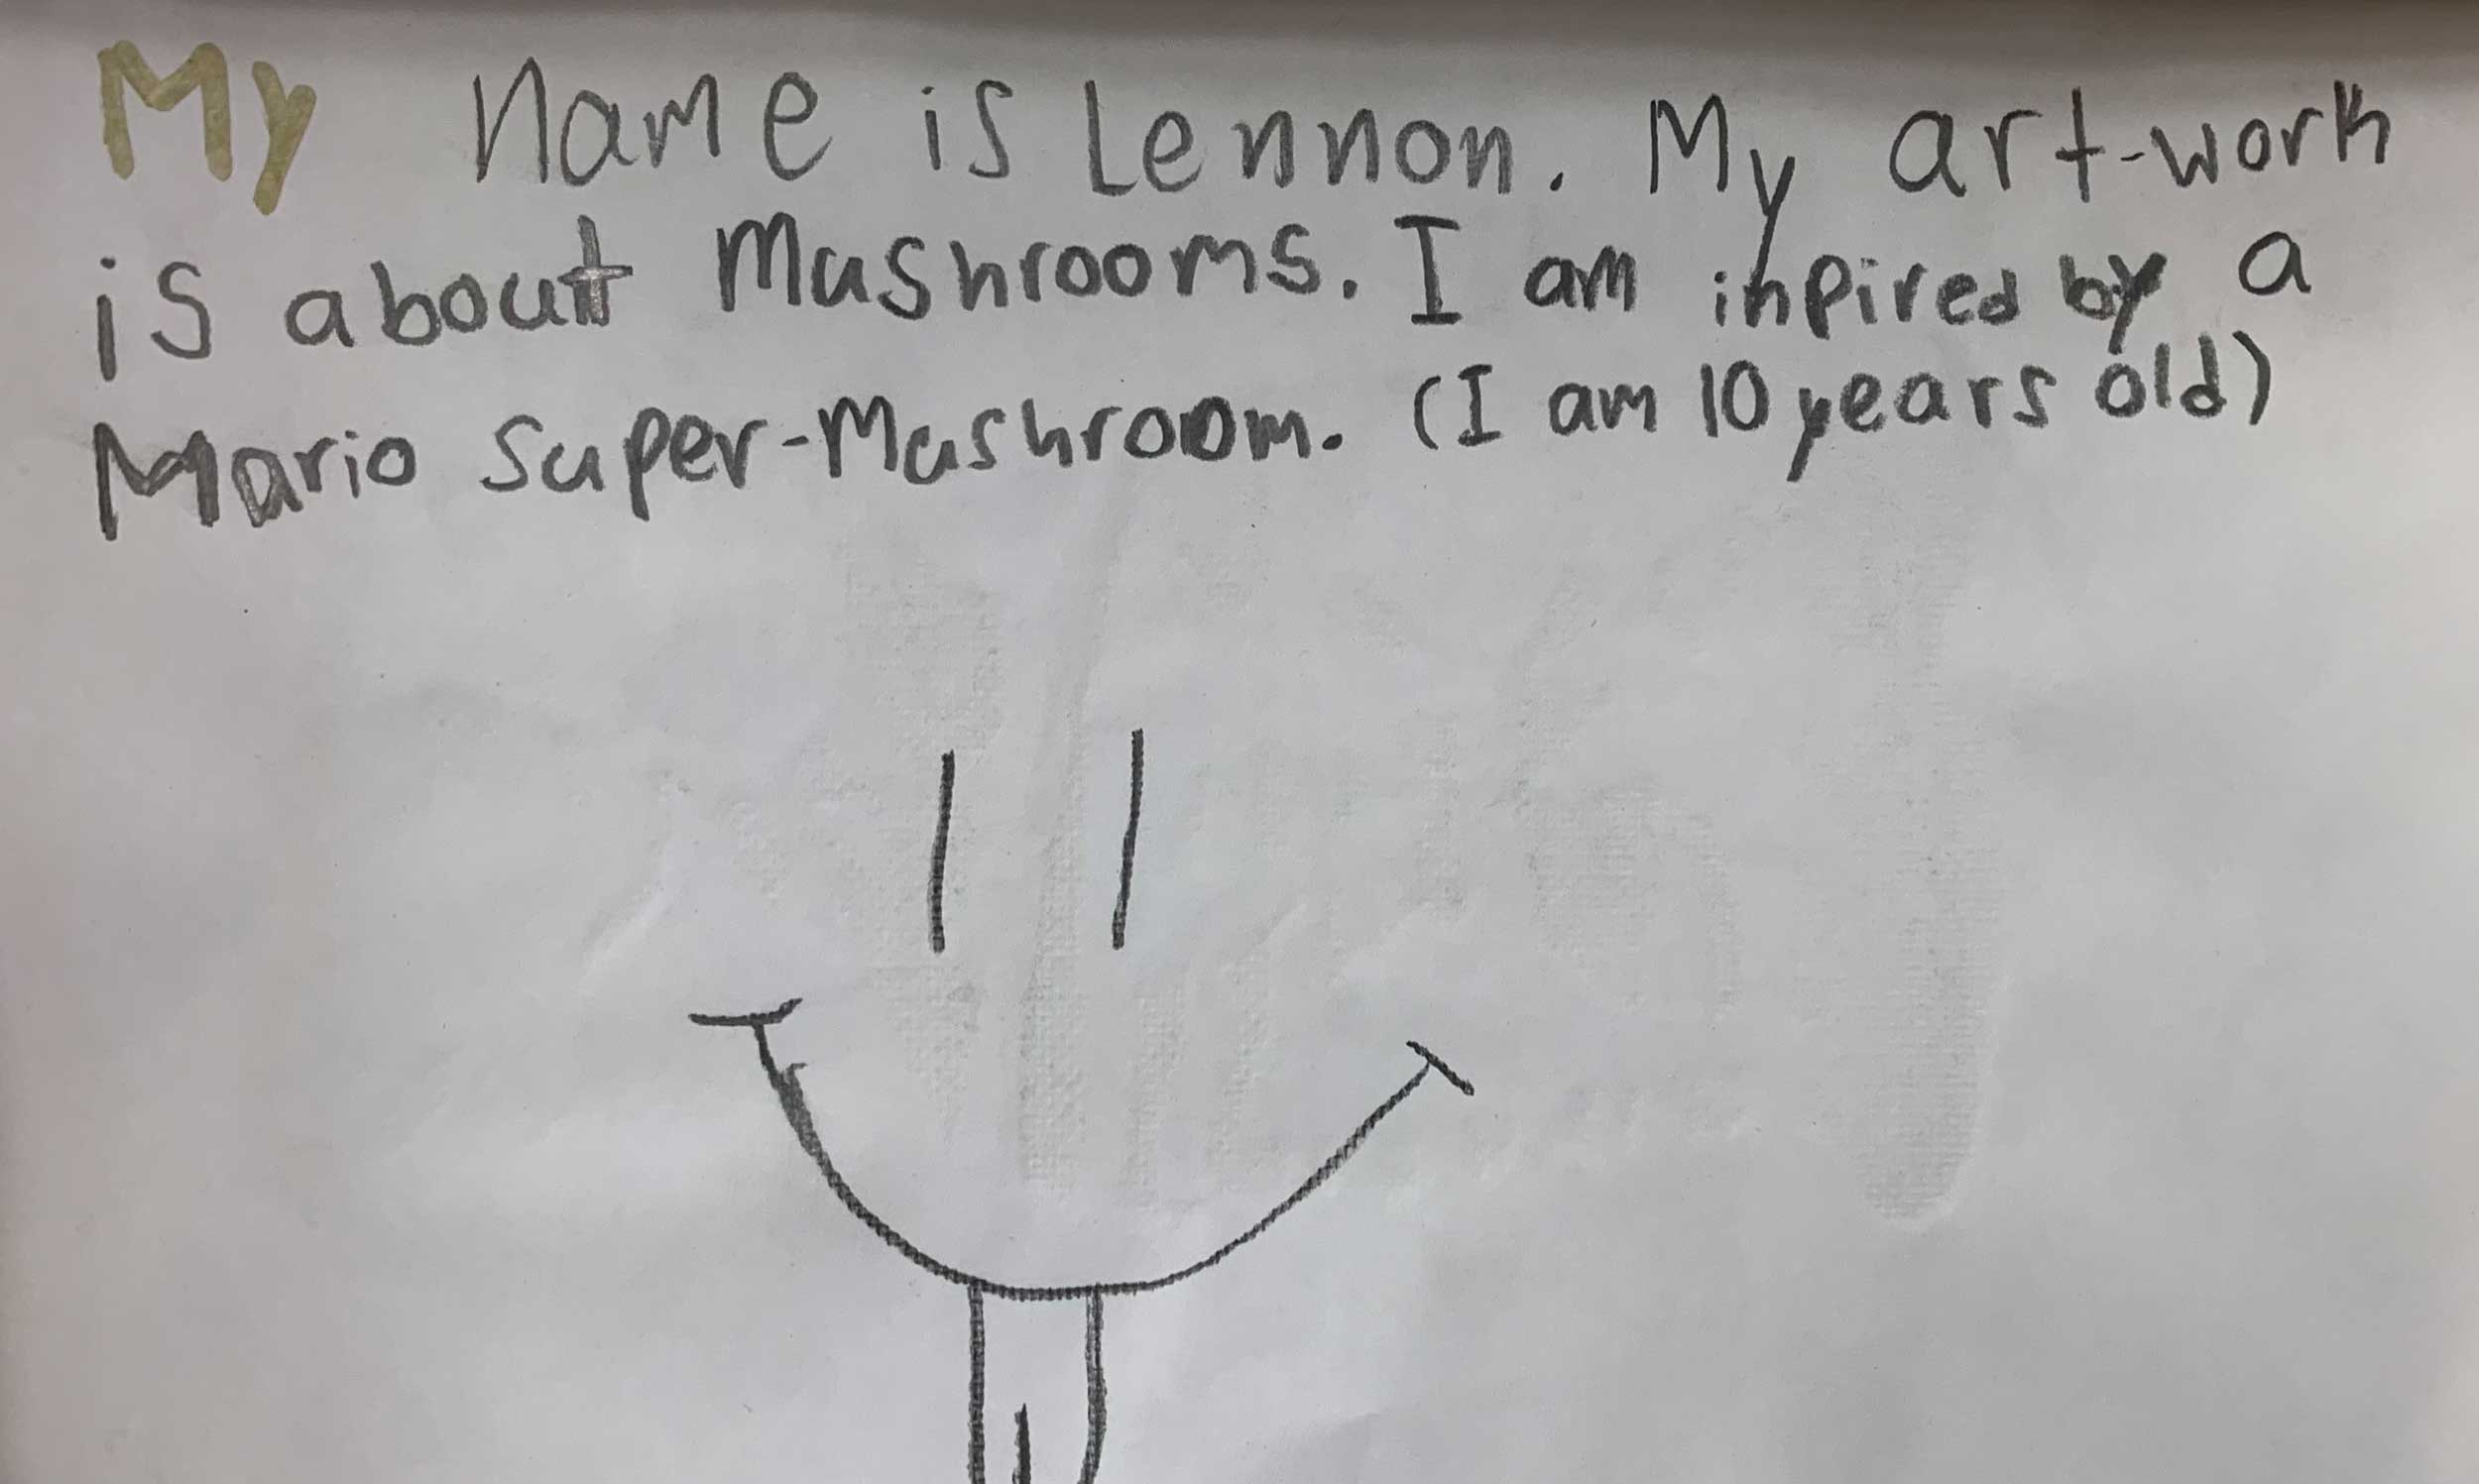 My name is Lennon. My art-work
is about Mushrooms. I am inpired by a
Mario Super-Mushroom. (I am 10 years old)